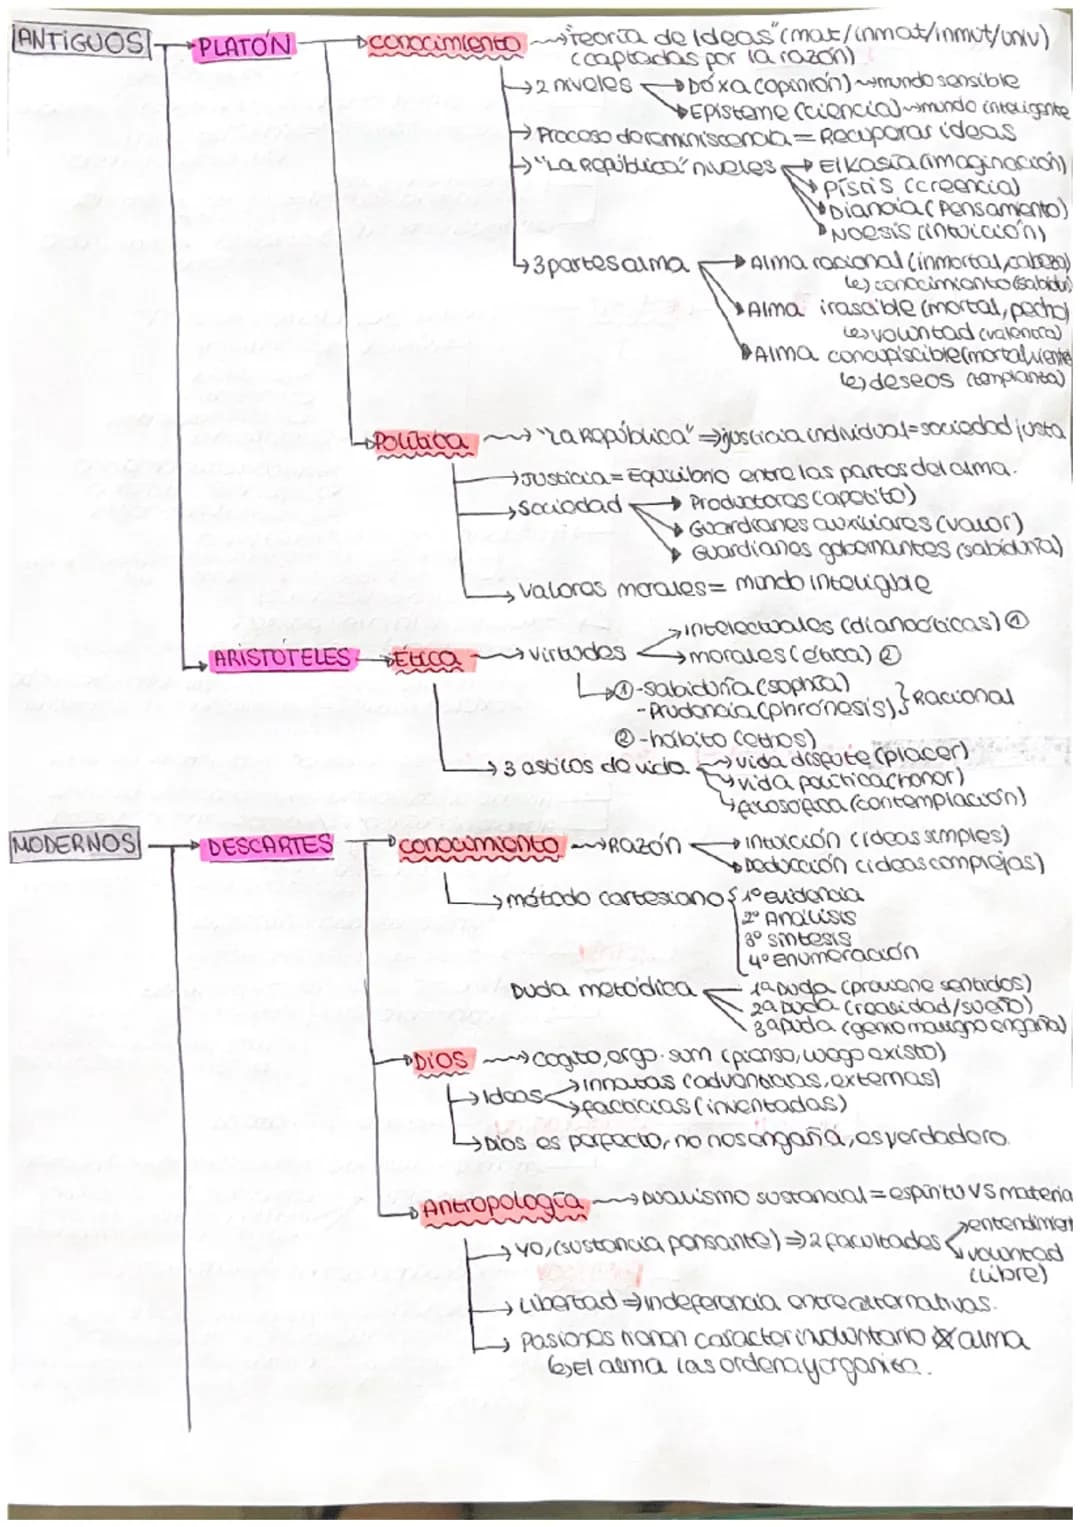 ANTIGUOS
PLATÓN
conocimiento
"Teoría de Ideas" (mat/inmat/inmut/univ)
(captadas por la razón)
2 niveles
Dóxa (opinión) mundo sensible
Episteme (ciencia) mundo inteligente
Proceso de reminiscencia = Recuperar ideas
"La República" niveles
Eikasía (imaginación)
Pístis (creencia)
Dianoia (Pensamiento)
Noesis (intuición)
3 partes alma
Alma racional (inmortal, cabeza)
conocimiento (sabidu)
Alma irascible (mortal, pecho)
voluntad (valentía)
Alma concupiscible (mortal, vientre
deseos (templanta)
Política
"La República" ⇒ justicia individual = sociedad justa
Justicia = Equilibrio entre las partes del alma.
Sociedad
Productores (apetito)
Guardianes auxiliares (valor)
Guardianes gobernantes (sabiduría)
valores morales = mundo inteligible
ARISTÓTELES
Ética
virtudes
intelectuales (dianoéticas) ①
morales (ética) ②
① - sabiduría (sophía)
- Prudencia (phrónesis) } Racional
② - hábito (ethos)
3 estilos de vida
vida disfute (placer)
vida política (honor)
filosófica (contemplación)
MODERNOS
DESCARTES
conocimiento
Razón
intuición (ideas simples)
Deducción (ideas complejas)
método cartesiano
1º evidencia
2º Análisis
3º síntesis
4º enumeración
Duda metódica
1ª Duda (proviene sentidos)
2ª Duda (realidad/sueño)
3ª Duda (genio maligno engaña)
DIOS
Cogito, ergo. sum (pienso, luego existo)
Ideas
innatas (adventicias, externas)
facticias (inventadas)
Dios es perfecto, no nos engaña, es verdadero.
Antropología
Dualismo sustancial = espíritu VS materia
Yo, (sustancia pensante) ⇒ 2 facultades
entendimien
voluntad
(libre)
Libertad ⇒ indeferencia entre alternativas.
Pasiones tienen caracter involuntario alma
El alma las ordena y organiza.